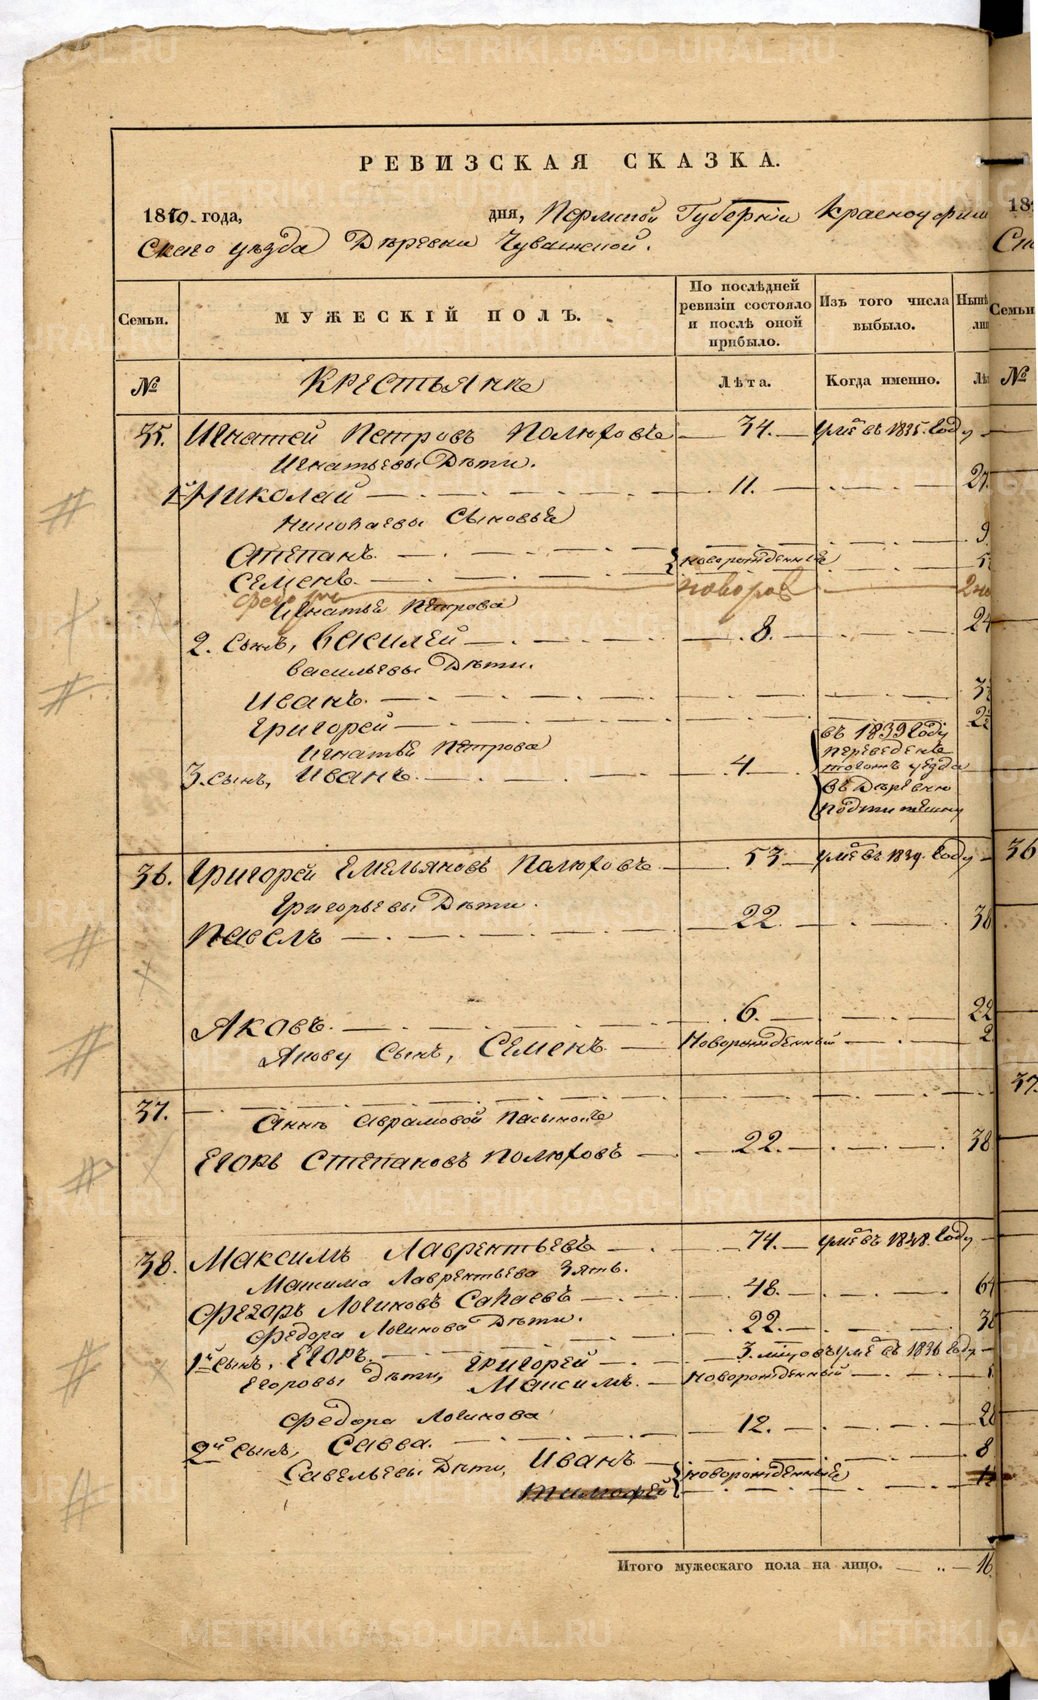 РЕВИЗСКАЯ СКАЗКА.
1850 года, дня, Пермской Губернiи Красноуфим
скаго уѣзда Дѣревни Чувашской.
Семьи. МУЖЕСКІЙ ПОЛЪ. По послѣдней ревизіи состояло и послѣ оной прибыло. Изъ того числа выбыло. Нынѣ
№ Крестьяне Лѣта. Когда именно. Лѣ
35. Игнатей Петровъ Полюховъ 34. умѣ въ 1835. Году
Игнатьевы Дѣти.
1й Николай 11. 27.
Николаевы Сыновья 9
Степанъ. новорожденные 5
Семенъ.
Федоръ новорож
Игнатья Петрова
2. Сынъ, Василей 8. 24
Васильевы Дѣти.
Иванъ. 3½
Григорей 2½
Игнатья Петрова
3. Сынъ, Иванъ. 4 въ 1839 Году
переведенъ
тогожъ уезда
въ Дѣревню
36. Григорей Емельяновъ Полюховъ 53 умѣ въ 1839. Году
Григорьевы Дѣти.
Павелъ 22. 38
Яковъ. 6. 22
Якову Сынъ, Семенъ Новорожденный 2
37.
Анны Аврамовой Пасынокъ
Егоръ Степановъ Полюховъ 22. 38
38. Максимъ Лаврентьевъ 74. умѣ въ 1848. Году
Максима Лаврентьева Зять.
Федоръ Логиновъ Сапаевъ 48. 64
Федора Логинова Дѣти. 22. 38
1й Сынъ, Егоръ,
Егоровы Дѣти, Григорей 3. мѣцовъ умѣ въ 1836 Году
Максимъ. Новорожденный
Федора Логинова
2й Сынъ, Савва. 12. 28
Савельевы Дѣти, Иванъ новорожденные 8
Тимофей
Итого мужескаго пола на лицо. 16.
36
37.
METRIKI.GASO-URAL.RU